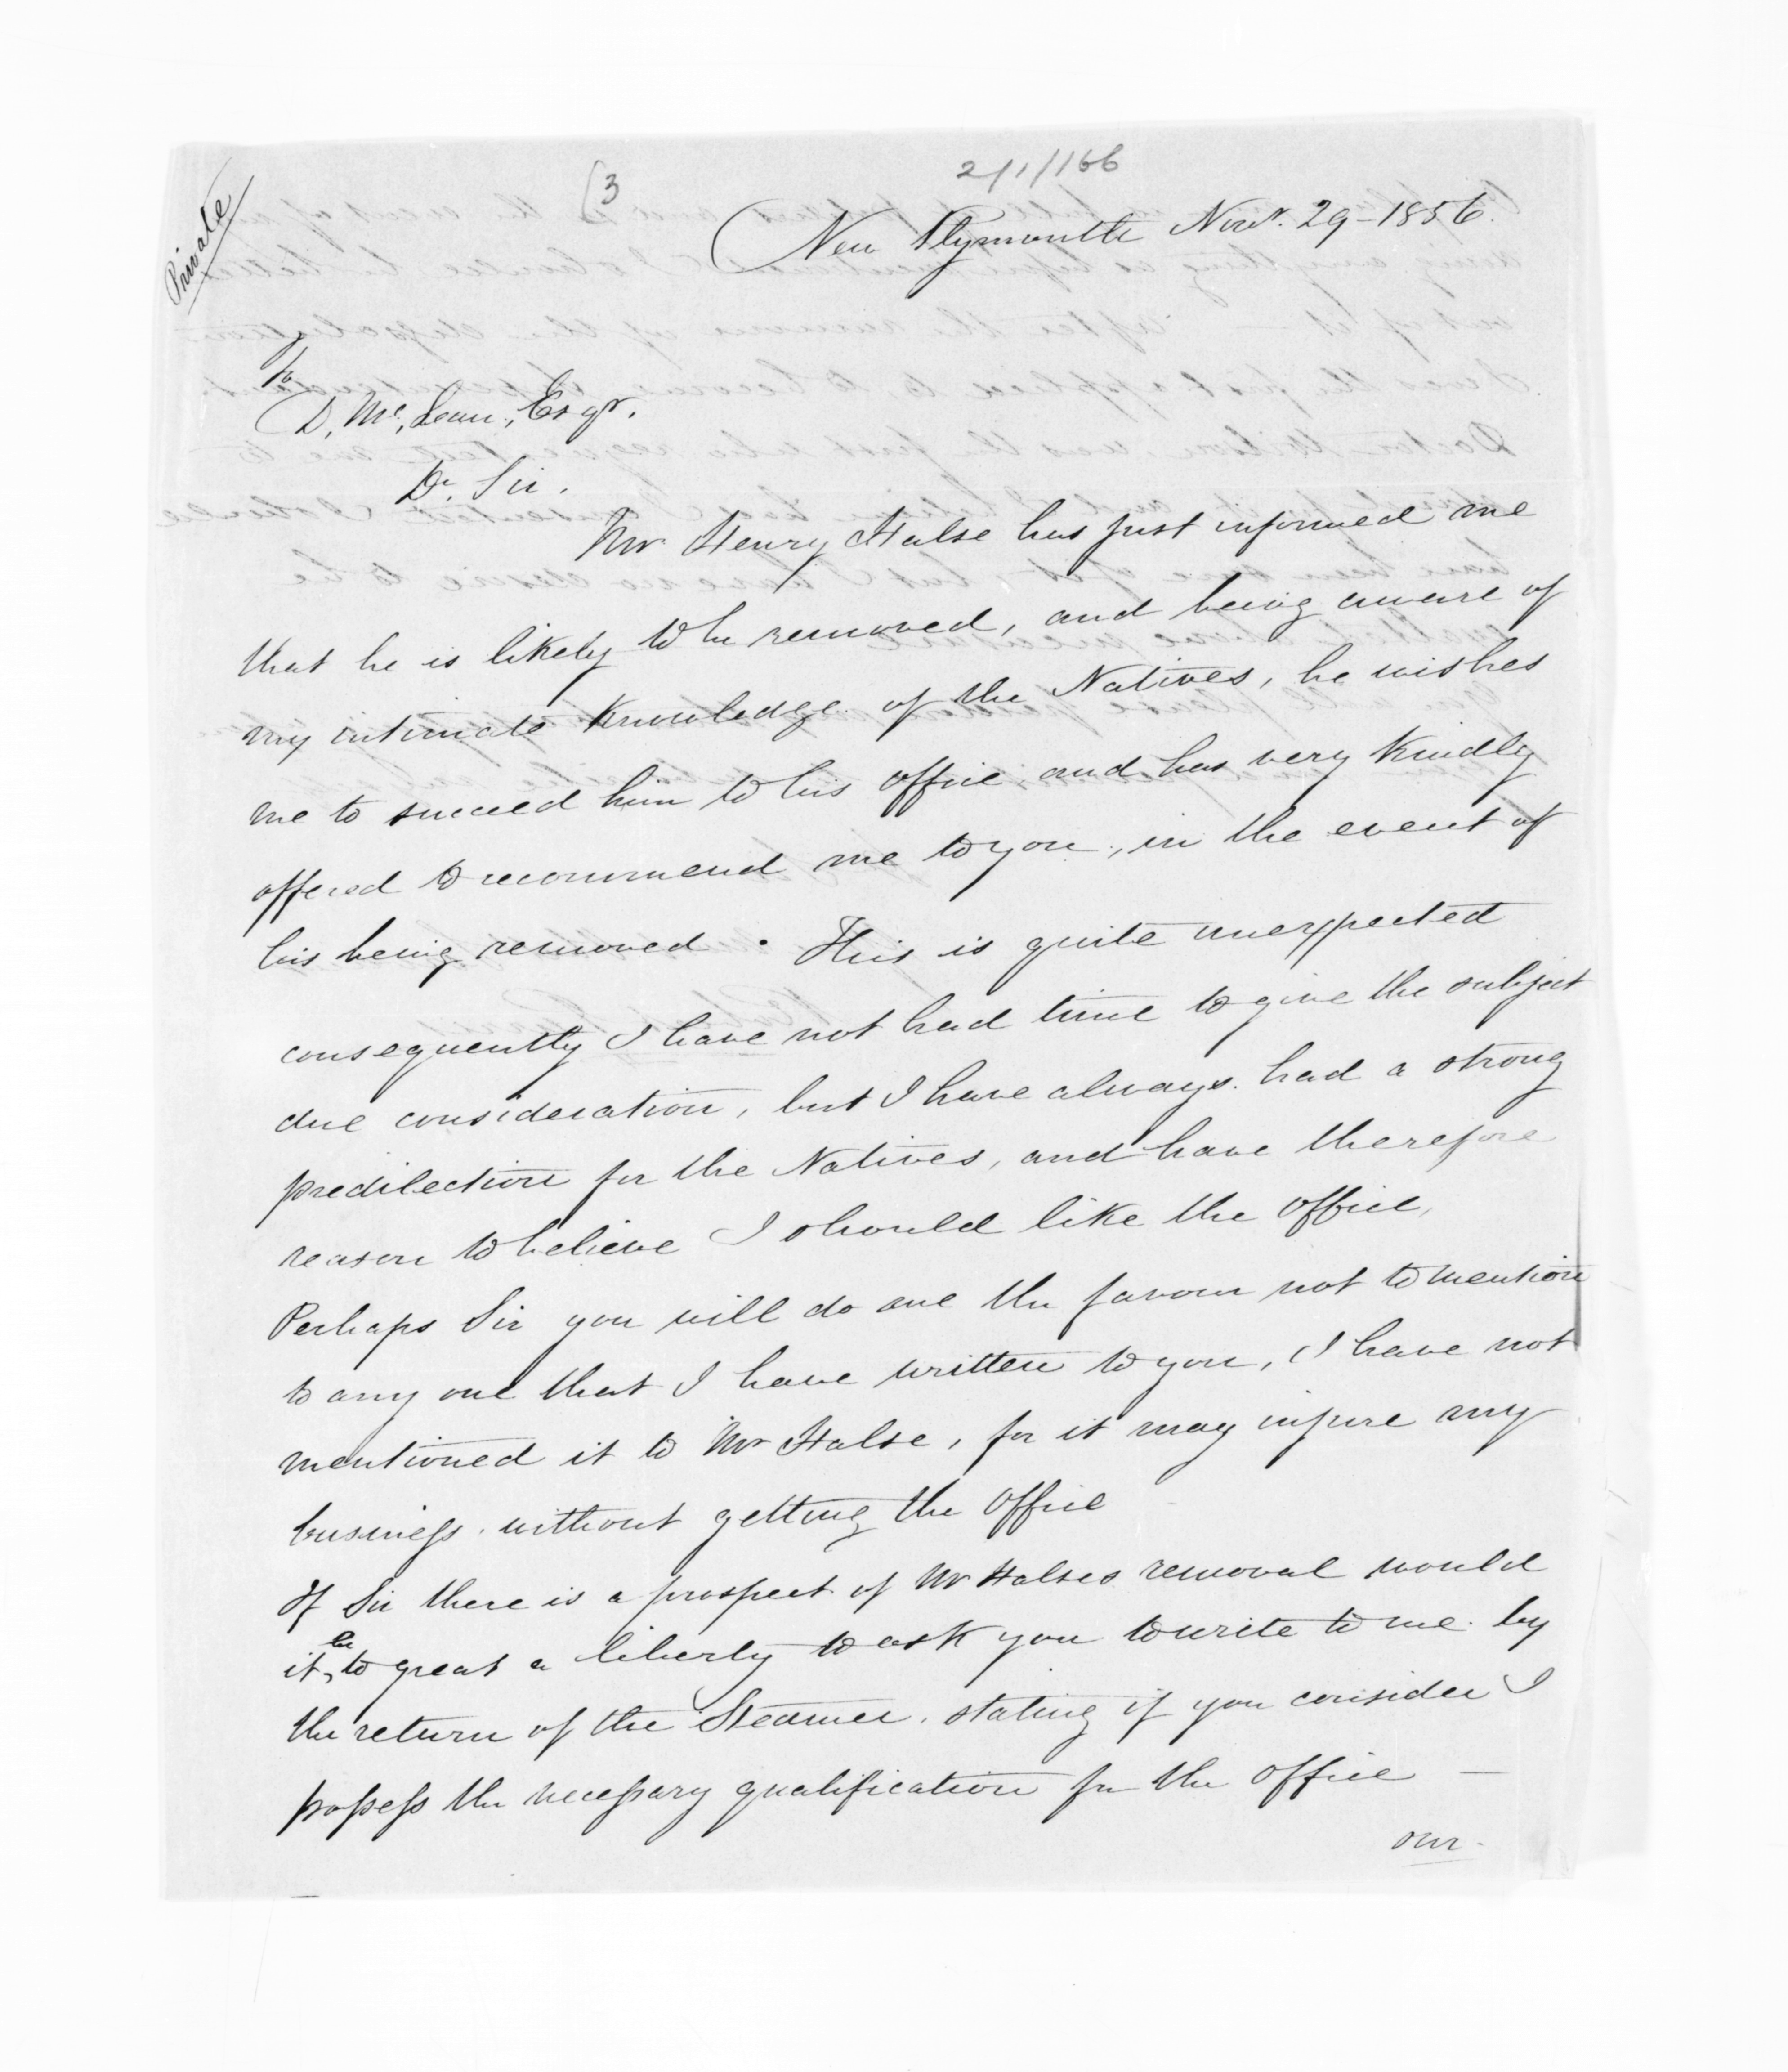 Private
(3
2/1/166
New Plymouth Novr. 29 - 1856.
To
D, Mc, Lean, Esqr.
Dr. Sir.
Mr Henry Halse has just informed me
that he is likely to be removed, and being aware of
my intimate knowledge of the Natives, he wishes
me to succeed him to his office, and has very kindly
offered to recommend me to you, in the event of
his being removed. This is quite unexpected
consequently I have not had time to give the subject
due consideration, but I have always had a strong
predilection for the Natives, and have therefore
reason to believe I should like the office,
Perhaps Sir you will do me the favour not to mention
to any one that I have written to you, I have not
mentioned it to Mr Halse, for it may injure my
business without getting the office
If Sir there is a prospect of Mr Halses removal would
it be to great a liberty to ask you to write to me by
the return of the Steamer. stating if you consider I
possess the necessary qualification for the office —